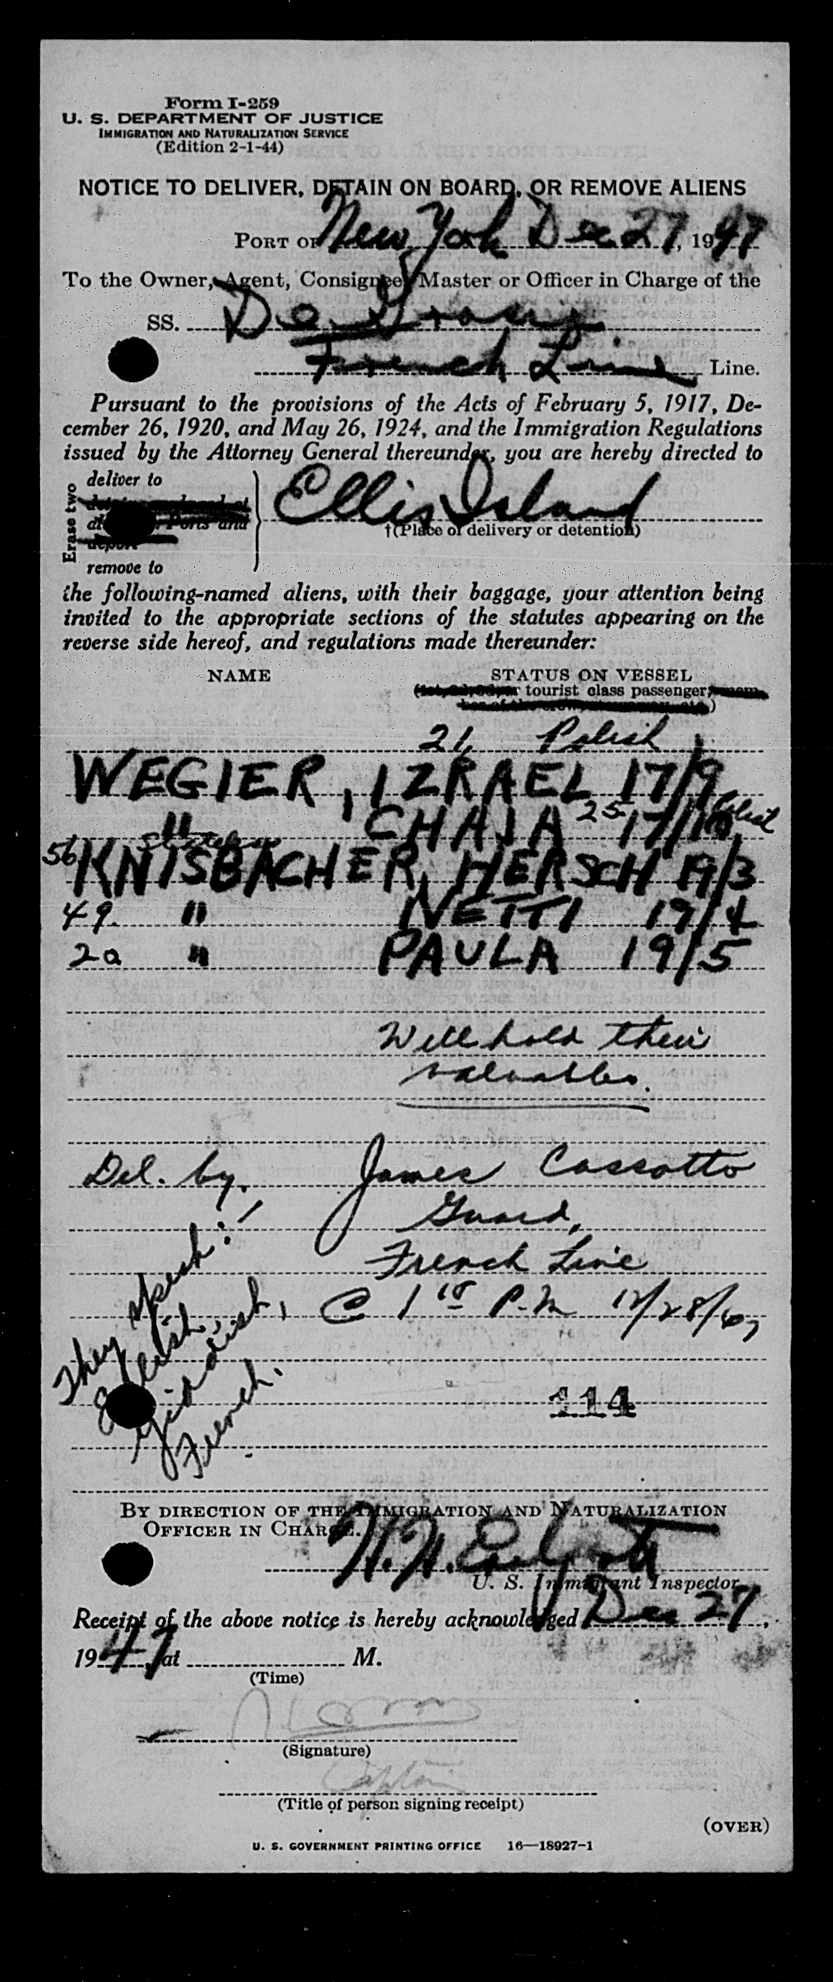 Form I-259
U. S. DEPARTMENT OF JUSTICE
IMMIGRATION AND NATURALIZATION SERVICE
(Edition 2-1-44)
NOTICE TO DELIVER, DETAIN ON BOARD, OR REMOVE ALIENS
PORT OF New York Dec 27, 1947
To the Owner, Agent, Consignee, Master or Officer in Charge of the
SS. De Grasse
French Line Line.
Pursuant to the provisions of the Acts of February 5, 1917, De-
cember 26, 1920, and May 26, 1924, and the Immigration Regulations
issued by the Attorney General thereunder, you are hereby directed to
Erase two
deliver to
Ports and
deport
remove to
Ellis Island
†(Place of delivery or detention)
the following-named aliens, with their baggage, your attention being
invited to the appropriate sections of the statutes appearing on the
reverse side hereof, and regulations made thereunder:
NAME STATUS ON VESSEL
tourist class passenger,
)
21 Polish
WEGIER, IZRAEL 17/9
" CHAJA 25 17/10 Polish
56 KNISBACHER, HERSCH 19/3
49 " NETTI 19/4
20 " PAULA 19/5
Will hold their
valuables.
Del. by. James Cassotto
Guard,
French Line
@ 1 15 P.M 12/28/47
They speak:-
English,
Yiddish,
French.
114
BY DIRECTION OF THE IMMIGRATION AND NATURALIZATION
OFFICER IN CHARGE.
U. S. Immigrant Inspector
Receipt of the above notice is hereby acknowledged Dec 27,
1947, at M.
(Time)
(Signature)
Captain
(Title of person signing receipt)
(OVER)
U. S. GOVERNMENT PRINTING OFFICE 16—18927-1